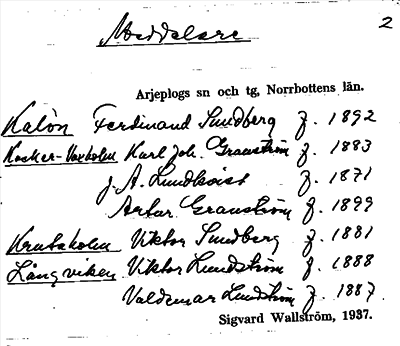 Meddelare
2
Arjeplogs sn och tg, Norrbottens län.
Kalön Ferdinand Sundberg f. 1892
Kasker-Vaxholm Karl Joh. Granström f. 1883
J. A. Lundkvist f. 1871
Artur Granström f. 1899
Krutaholm Viktor Sundberg f. 1881
Långviken Viktor Lundström f. 1888
Valdemar Lundström f. 1887.
Sigvard Wallström, 1937.